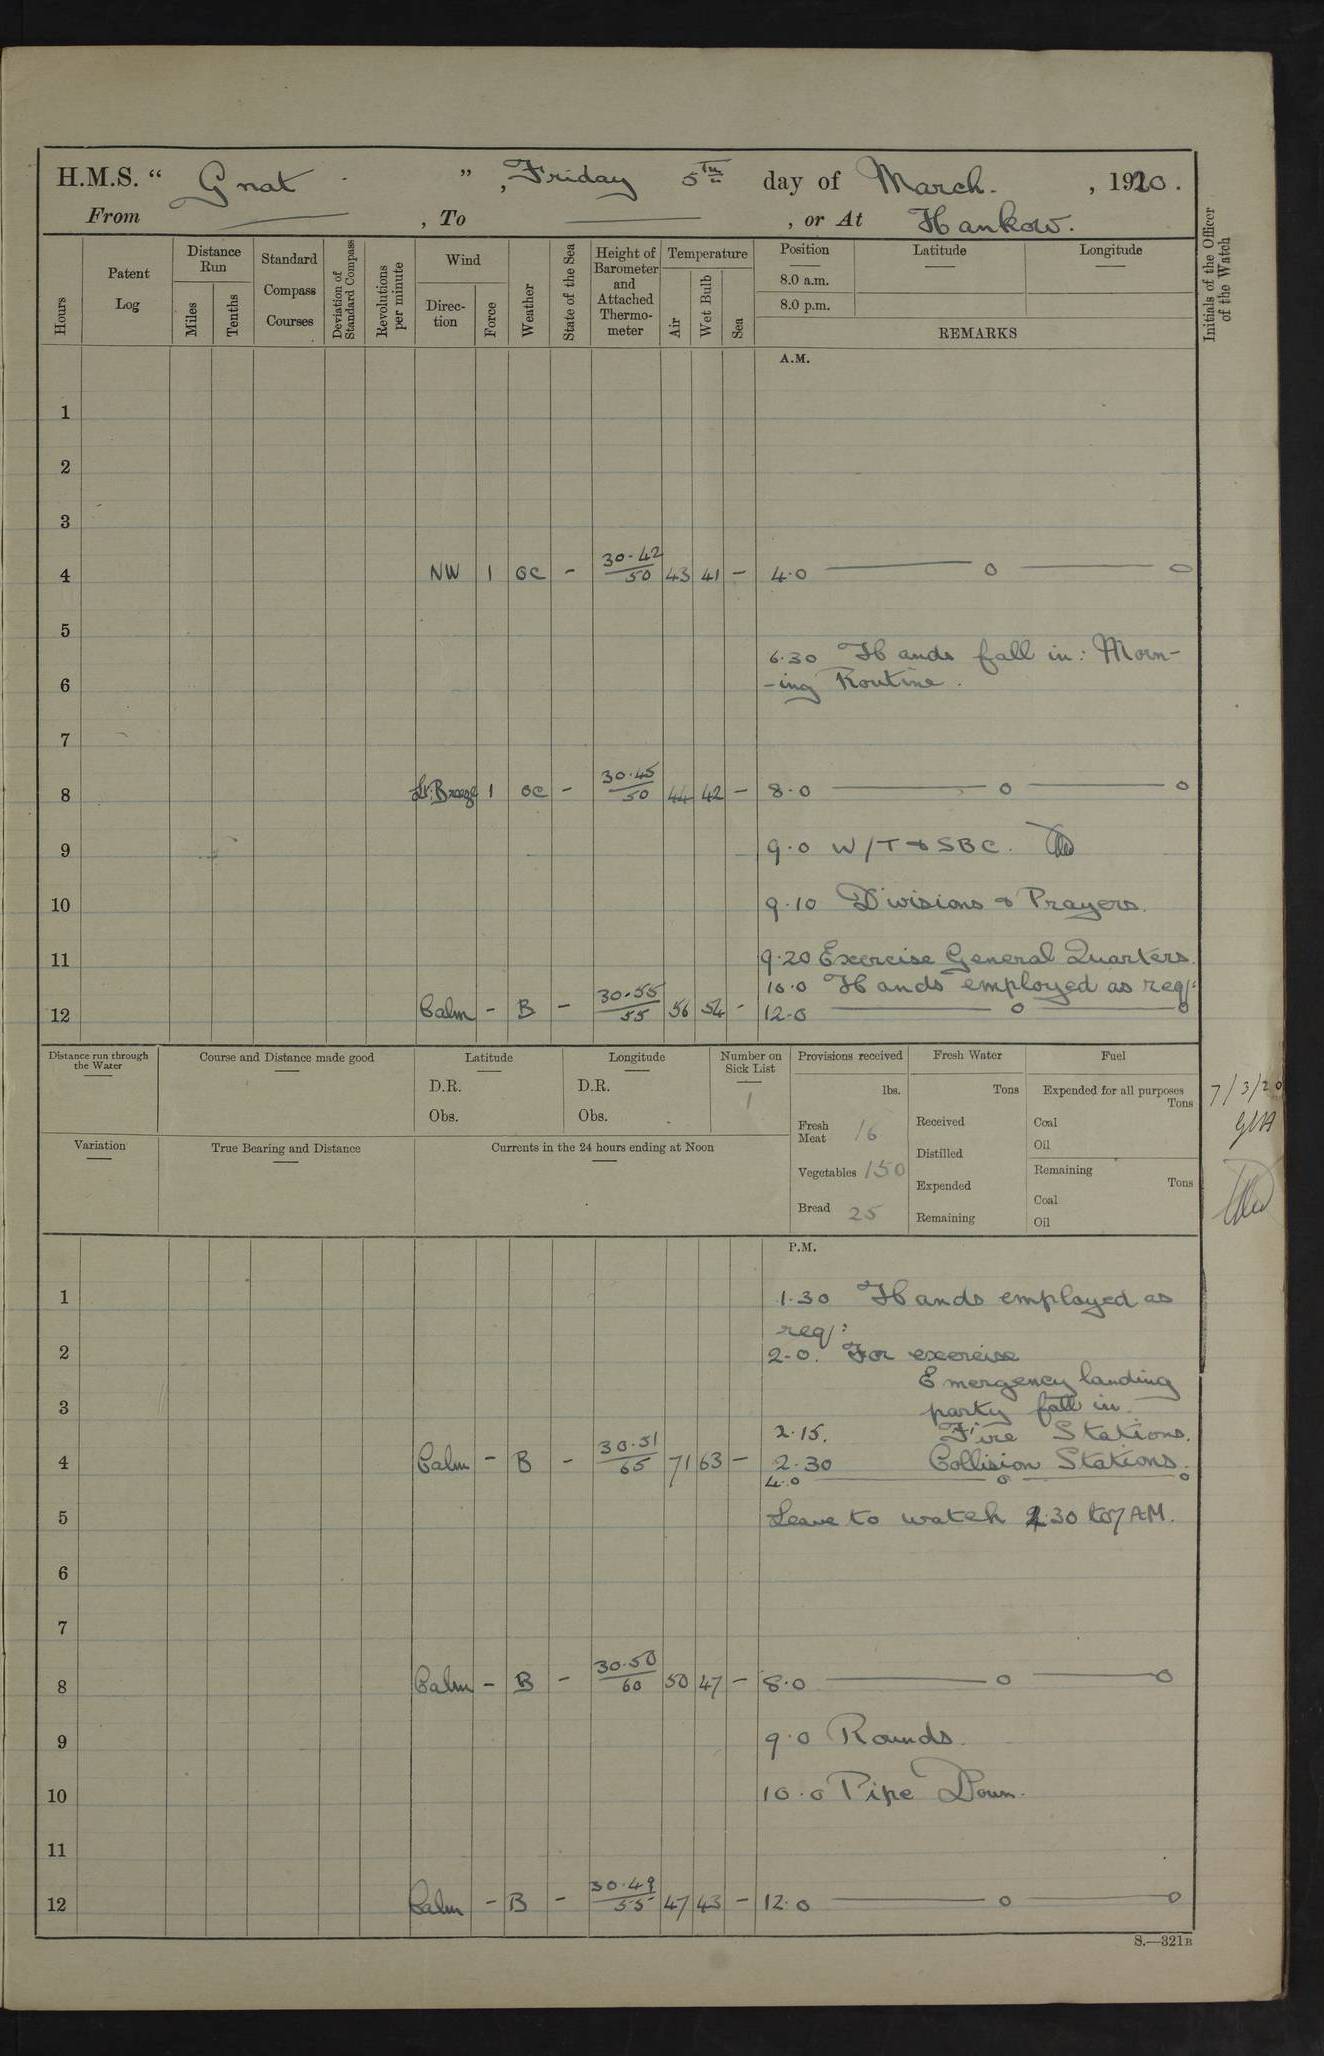 H.M.S. “ Gnat ” , Friday 5th day of March. , 1920.
From , To , or At Hankow.
Hours
Patent Log
Distance Run
Miles
Tenths
Standard Compass Courses
Deviation of Standard Compass
Revolutions per minute
Wind
Direc-tion
Force
Weather
State of the Sea
Height of Barometer and Attached Thermo-meter
Temperature
Air
Wet Bulb
Sea
Position
8.0 a.m.
8.0 p.m.
Latitude
Longitude
REMARKS
Initials of the Officer of the Watch
A.M.
1
2
3
4 NW 1 OC - 30.42/50 43 41 - 4.0 —— o —— o
5
6.30 Hands fall in: Morn-
6 -ing Routine.
7
8 Lt. Breeze 1 OC - 30.45/50 44 42 - 8.0 —— o —— o
9 9.0 W/T & SBC.
10 9.10 Divisions & Prayers.
11 9.20 Exercise General Quarters.
10.0 Hands employed as req:
12 Calm - B - 30.55/55 56 54 - 12.0 —— o —— o
Distance run through the Water
Course and Distance made good
Latitude
D.R.
Obs.
Longitude
D.R.
Obs.
Number on Sick List
1
Provisions received
lbs.
Fresh Meat 16
Vegetables 150
Bread 25
Fresh Water
Tons
Received
Distilled
Expended
Remaining
Fuel
Expended for all purposes
Tons
Coal
Oil
Remaining
Tons
Coal
Oil
7/3/20
Variation
True Bearing and Distance
Currents in the 24 hours ending at Noon
P.M.
1 1.30 Hands employed as
req:
2 2.0. For exercise
Emergency landing
3 party fall in.
2.15. Fire Stations.
4 Calm - B - 30.51/65 71 63 - 2.30 Collision Stations.
4.0 —— o —— o
5 Leave to watch 1.30 to 7 AM.
6
7
8 Calm - B - 30.50/60 50 47 - 8.0 —— o —— o
9 9.0 Rounds.
10 10.0 Pipe Down.
11
12 Calm - B - 30.49/55 47 43 - 12.0 —— o —— o
S.—321B